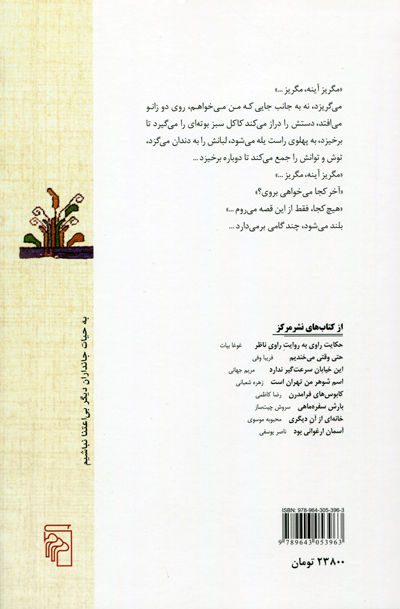 «مگریز آینه، مگریز ...»
می‌گریزد، نه به جانب جایی که من می‌خواهم، روی دو زانو
می‌افتد، دستش را دراز می‌کند کاکل سبز بوته‌ای را می‌گیرد تا
برخیزد، به پهلوی راست یله می‌شود، لبانش را به دندان می‌گزد،
توش و توانش را جمع می‌کند تا دوباره برخیزد ...
«مگریز آینه، مگریز ...»
«آخر کجا می‌خواهی بروی؟»
«هیچ کجا، فقط از این قصه می‌روم ...»
بلند می‌شود، چند گامی برمی‌دارد ...
به حیات جانداران دیگر بی‌اعتنا نباشیم
از کتاب‌های نشرمرکز
حکایت راوی به روایت راوی ناظر غوغا بیات
حتی وقتی می‌خندیم فریبا وفی
این خیابان سرعت‌گیر ندارد مریم جهانی
اسم شوهر من تهران است زهره شعبانی
کابوس‌های فرامدرن رضا کاظمی
بارش سفره‌ماهی سروش چیت‌ساز
خانه‌ای از آنِ دیگری محبوبه موسوی
آسمان ارغوانی بود ناصر یوسفی
ISBN: 978-964-305-396-3
9 789643 053963
۲۳۸۰۰ تومان